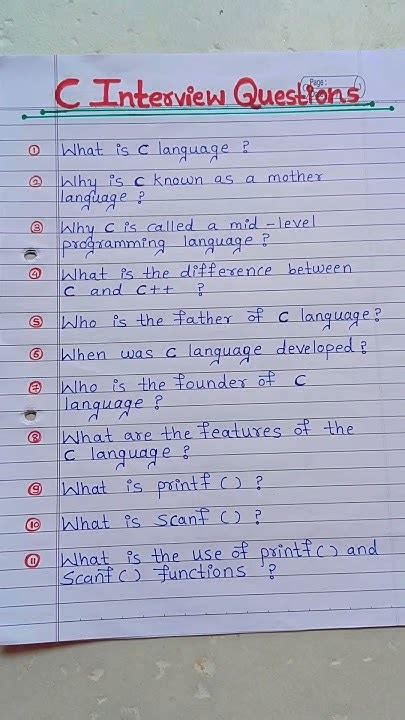 Page:
C Interview Questions
① What is C language ?
② Why is C known as a mother
language ?
③ Why C is called a mid-level
programming language ?
④ What is the difference between
C and C++ ?
⑤ Who is the father of C language?
⑥ When was C language developed ?
⑦ Who is the founder of C
language ?
⑧ What are the features of the
C language ?
⑨ What is printf () ?
⑩ What is scanf () ?
⑪ What is the use of printf() and
scanf() functions ?